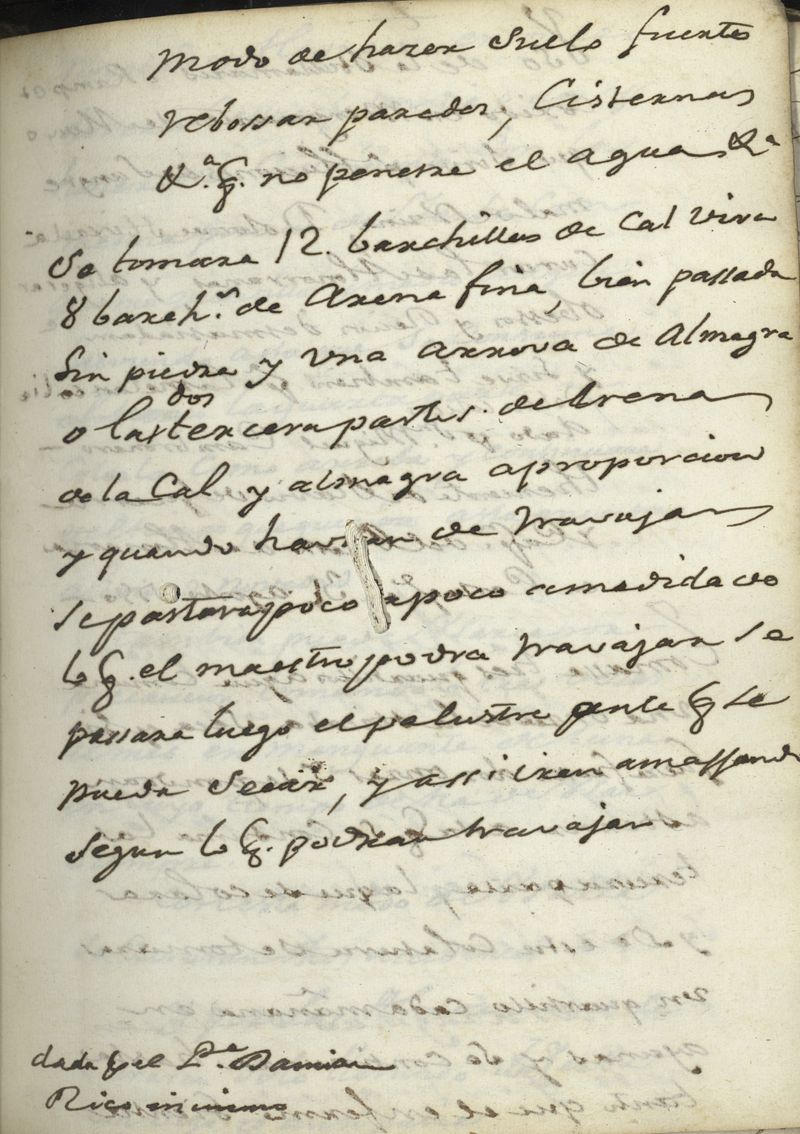 Modo de hazer Suelo fuentes
rebossar paredes, Cisternas
&.ª q. no penetre el agua &ª
Se tomara 12. barchillas de Cal viva
8 barch.ˢ de Arena fina, bien passada
Sin piedra y Una arrova de Almagra
o las dos tercera partes. de Arena
de la Cal y almagra a proporcion
y quando havran de travajar
se pastara poco apoco amedida de
lo q. el maestro podra travajar se
passara luego el palustre antes q se
pueda Secar, y assi iran amassando
Segun lo q. podran travajar
dada p el P.ᵉ Damian
Rico